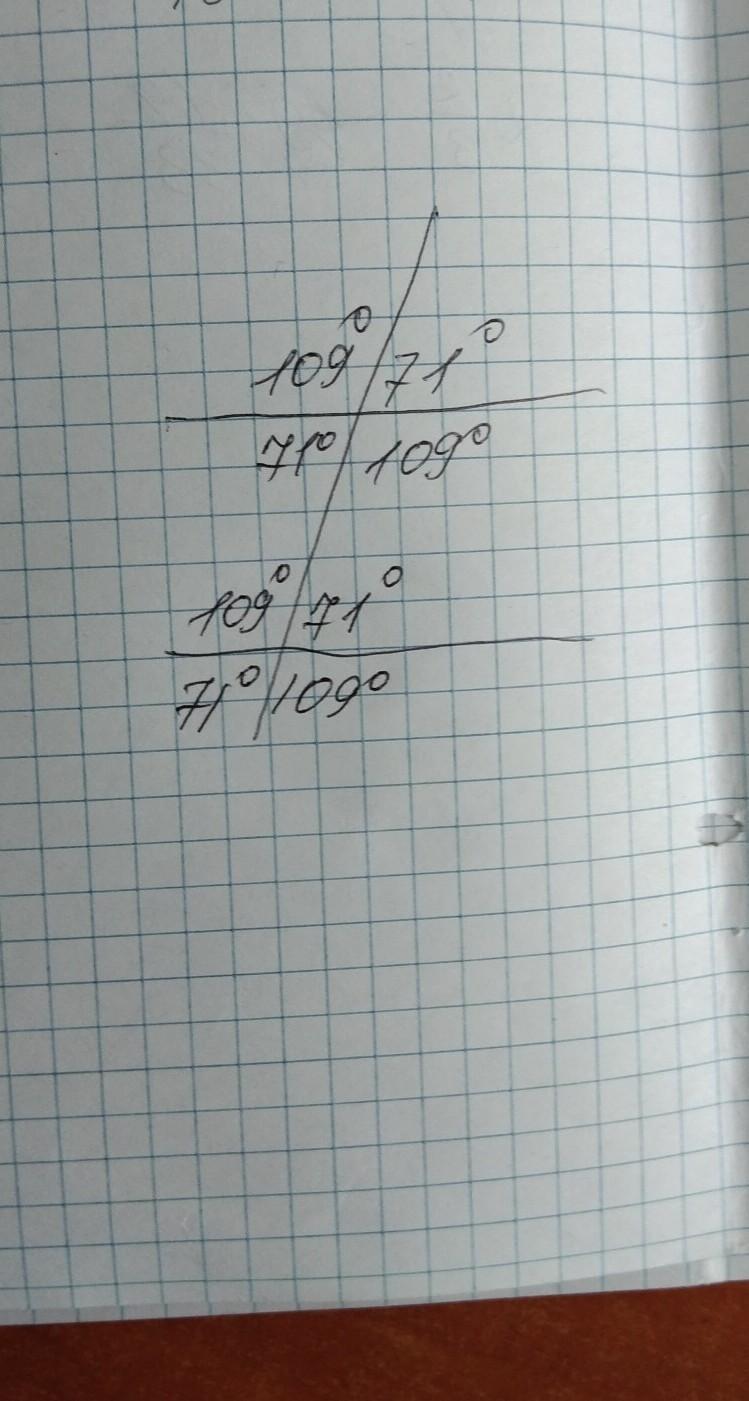 109° 71°
71° 109°
109° 71°
71° 109°